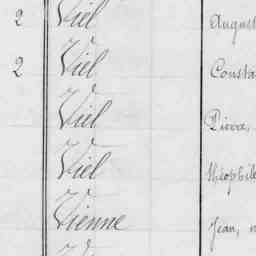 2 Viel August
2 Viel Consta
Viel Pierre,
Viel Théophile
Vienne Jean, n